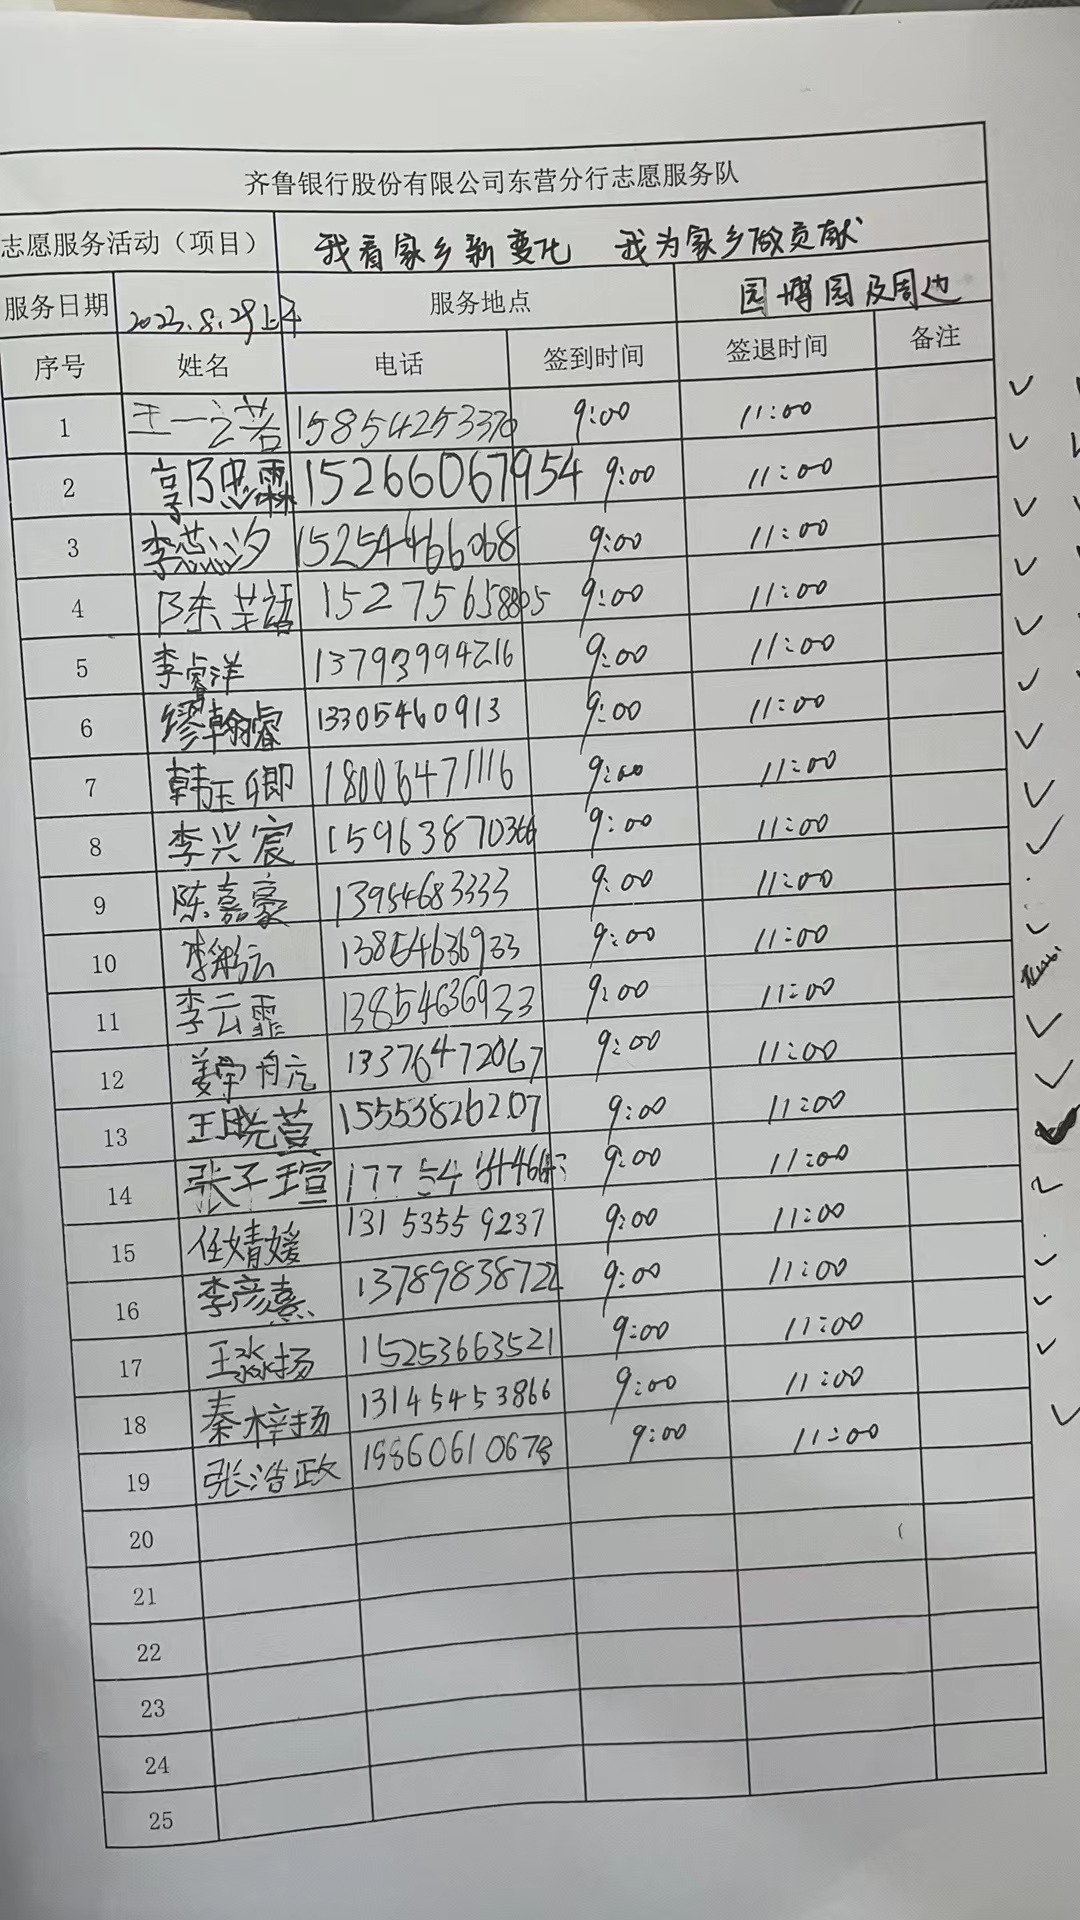 齐鲁银行股份有限公司东营分行志愿服务队
志愿服务活动（项目） 我看家乡新变化 我为家乡做贡献
服务日期 2023.8.29上午 服务地点 园博园及周边
序号 姓名 电话 签到时间 签退时间 备注
1 王一诺 15854253370 9:00 11:00
2 郭思霖 15266067954 9:00 11:00
3 李蕊汐 15254466068 9:00 11:00
4 陈芊语 15275658805 9:00 11:00
5 李睿洋 13793994216 9:00 11:00
6 缪翰睿 13305460913 9:00 11:00
7 韩玉卿 18006471116 9:00 11:00
8 李兴宸 15963870366 9:00 11:00
9 陈嘉豪 13954683333 9:00 11:00
10 李彤云 13854636933 9:00 11:00
11 李云霏 13854636933 9:00 11:00
12 姜宇航 13376472067 9:00 11:00
13 王晓萱 15553826207 9:00 11:00
14 张子瑄 9:00 11:00
15 任婧媛 13153559237 9:00 11:00
16 李彦熹 13789838722 9:00 11:00
17 王淼扬 15253663521 9:00 11:00
18 秦梓扬 13145453866 9:00 11:00
19 张浩政 19860610678 9:00 11:00
20
21
22
23
24
25